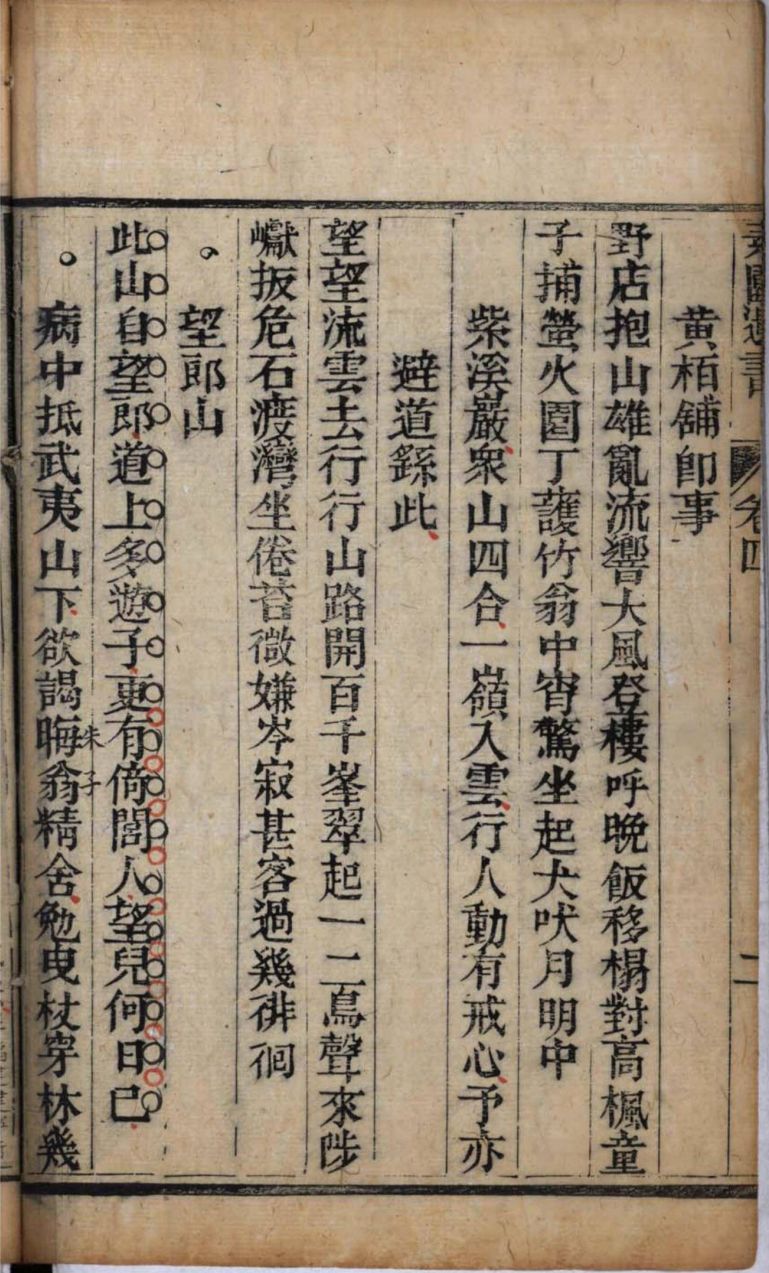 素園遺書 卷四 二
黄栢舖卽事
野店抱山雄亂流響大風登樓呼晚飯移榻對高楓童
子捕螢火園丁護竹翁中宵驚坐起犬吠月明中
紫溪巖衆山四合一嶺入雲行人動有戒心予亦
避道繇此
望望流雲去行行山路開百千峯翠起一二鳥聲來陟
巘扳危石渡灣坐倦苔微嫌岑寂甚客過幾徘徊
望郎山
此山自望郎道上多遊子更有倚閭人望兒何日已
病中抵武夷山下欲謁晦翁精舍勉曳杖穿林幾
朱子